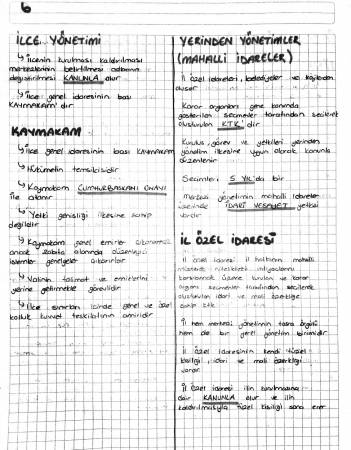 6
İLCE YÖNETİMİ
↳ İlcenin kurulması kaldırılması
merkezlerinin belirtilmesi adlarının
değiştirilmesi KANUNLA olur
↳ İlce genel idaresinin bası
KAYMAKAM'dır
KAYMAKAM
↳ İlce genel idaresinin bası KAYMAKAM
↳ Hükümetin temsilcisidir
↳ Kaymakam CUMHURBASKANI ONAYI
ile atanır
↳ Yetki genisliği ilkesine sahip
değildir
↳ Kaymakam genel emirler çıkaramaz
ancak zabıta alanında düzenleyici
islemler genelgeler çıkarırlar
↳ Valinin talimat ve emirlerini
yerine getirmekle görevlidir
↳ İlce sınırları icinde genel ve özel
kolluk kuvvet teskilatının amiridir
YERİNDEN YÖNETİMLER
(MAHALLİ İDARELER)
İl özel idareleri, belediyeler ve köylerden
olusur
Karar organları gene kanunda
gösterilen secmenler tarafından secilerek
olusturulan KTK'dır
Kurulus, görev ve yetkileri yerinden
yönetim ilkesine uygun olarak kanunla
düzenlenir
Secimleri 5 YIL'da bir
Merkezi yönetimin mahalli idareler
üzerinde İDARİ VESAYET yetkisi
vardır
İL ÖZEL İDARESİ
İl özel idaresi il halkının mahalli
müsterek nitelikteki ihtiyaclarını
karsılamak üzere kurulan ve karar
organı secmenler tarafından secilerek
olusturulan idari ve mali özerkliğe
sahip KTK
İl hem merkezi yönetimin tasra örgütü
hem de bir yerel yönetim birimidir
İl özel idaresinin kendi tüzel
kisiliği, idari ve mali özerkliği
vardır
İl özel idaresi ilin kurulmasına
dair KANUNLA olur ve ilin
kaldırılmasıyla tüzel kisiliği sona erer